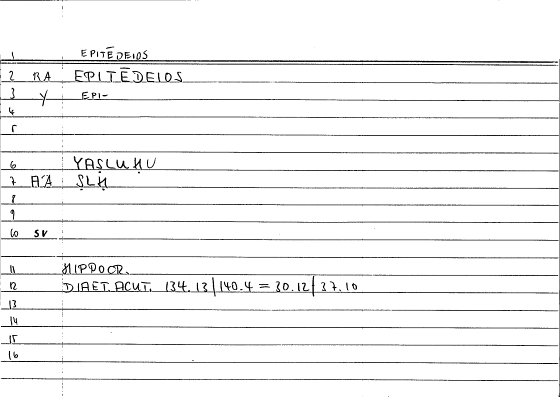 1 EPITĒDEIOS
2 RA EPITĒDEIOS
3 Y EPI-
4
5
6 YAṢLUḤU
7 AA ṢLḤ
8
9
10 SV
11 HIPPOCR.
12 DIAET.ACUT. 134.13|140.4 = 30.12|37.10
13
14
15
16